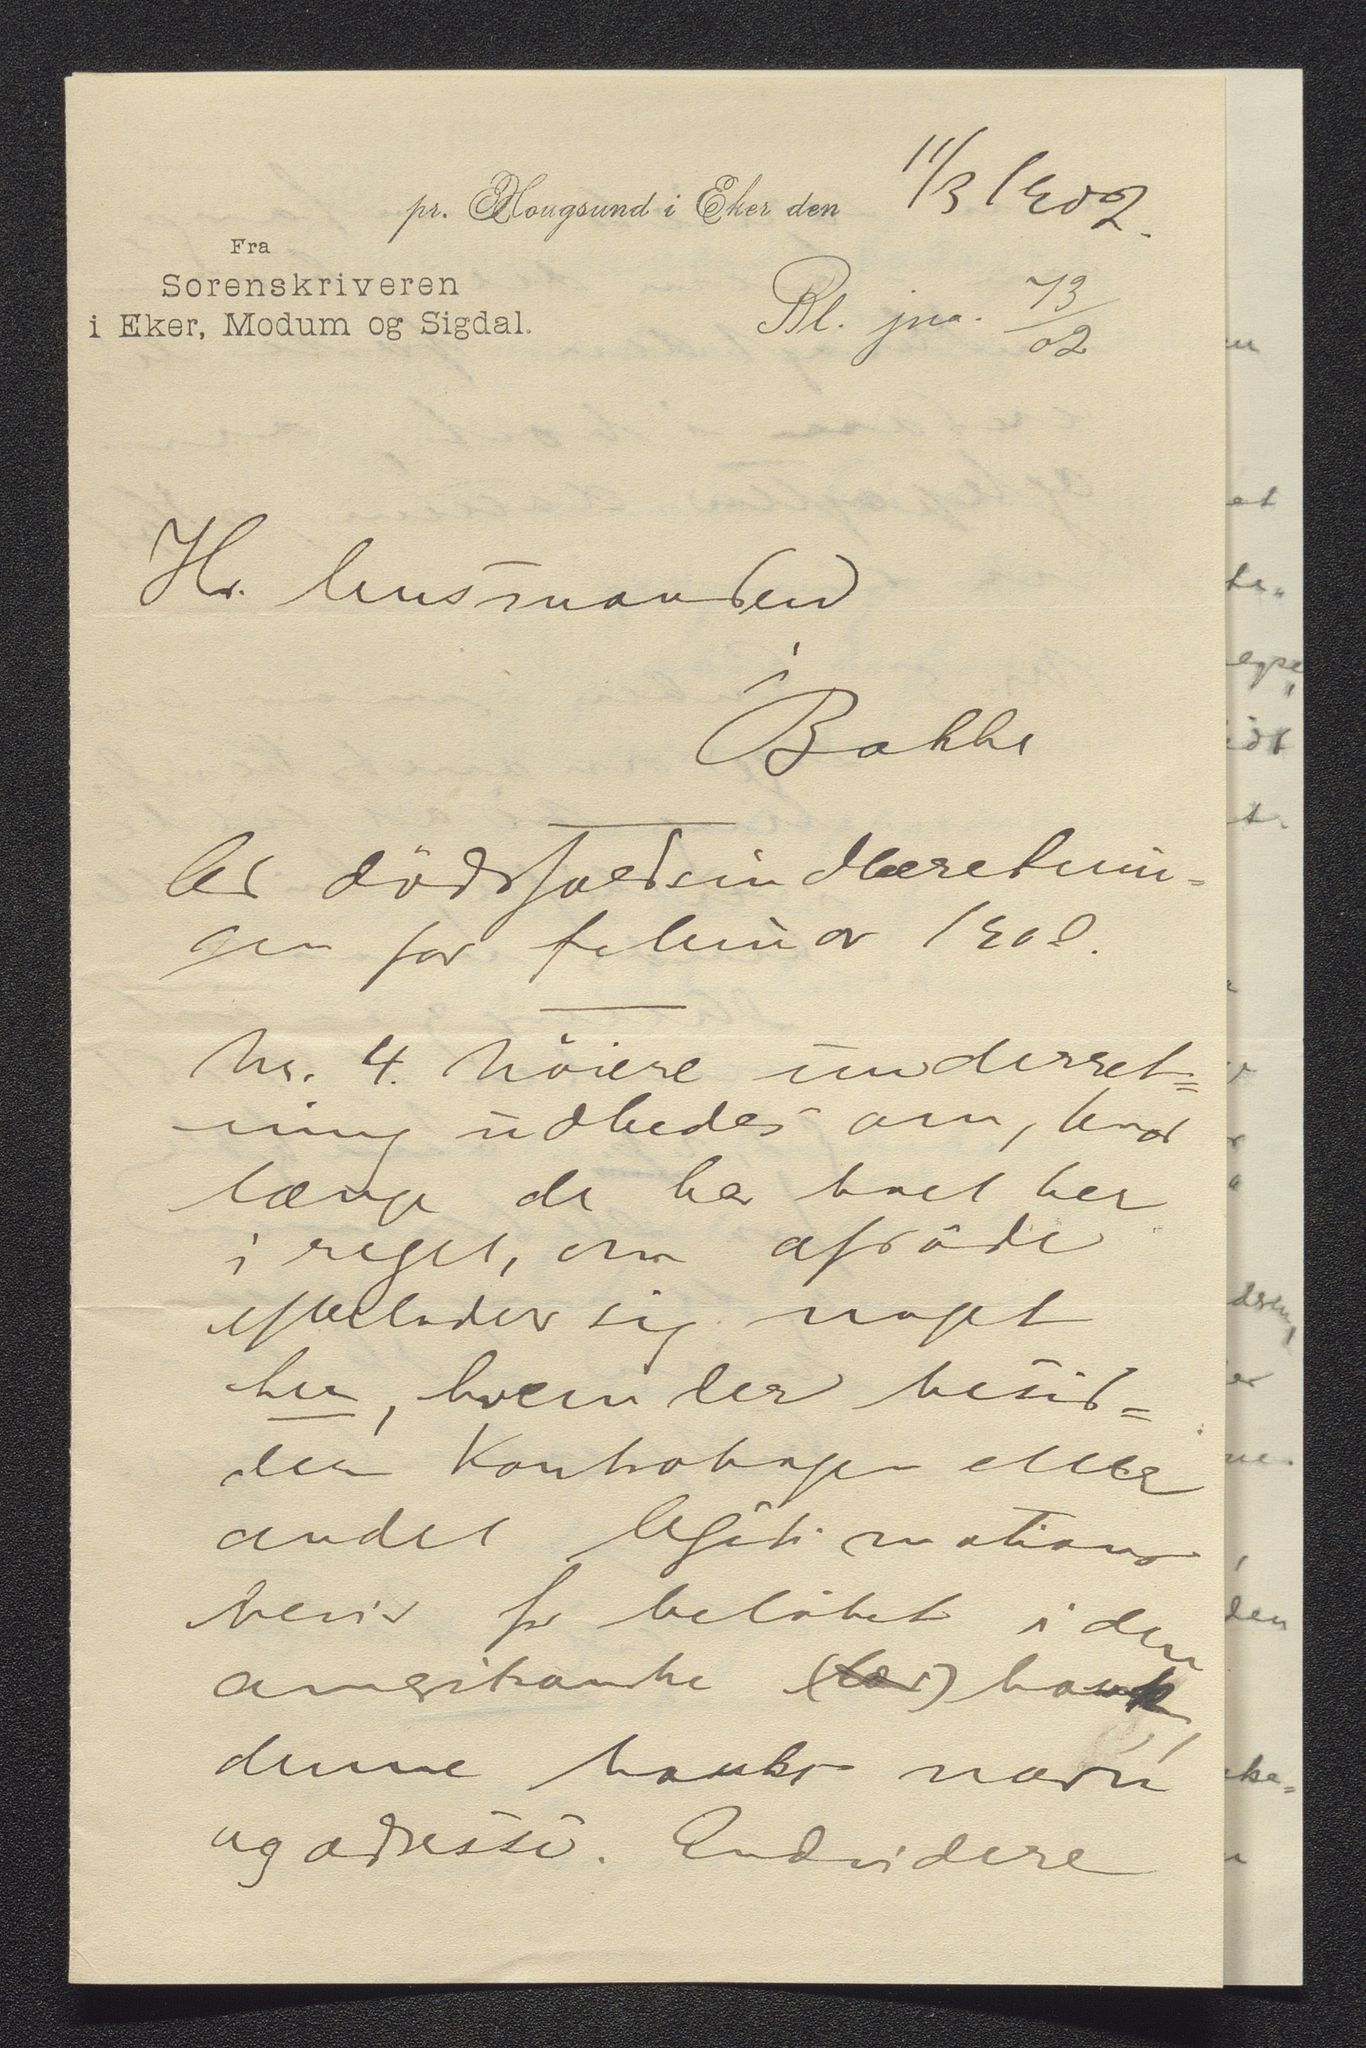 pr. Hougsund i Eker den 11/3 1902.
Fra
Sorenskriveren
i Eker, Modum og Sigdal.
Bl. jno. 73/02
Hr. lensmanden
i
Bakke
Ad dödsfaldsindberetnin-
gen for februar 1902.
Nr. 4. Nöiere underret-
ning udbedes om, hvor
længe de har boet her
i riget, om afdöde
efterlader sig noget
her, hvem der besid-
der Kontrabogen eller
andet legitimations
bevis for belöbet i den
amerikanske bank,
denne banks navn
og adresse. Endvidere